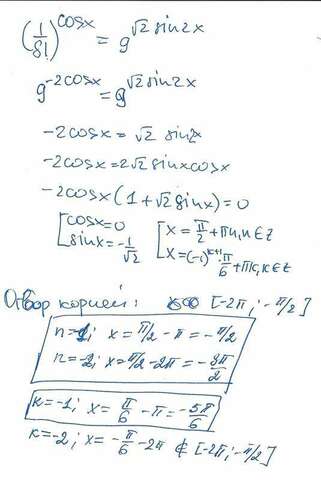 (1/81)^cosx = 9^√2 sin2x
9^-2cosx = 9^√2 sin2x
-2cosx = √2 sin2x
-2cosx = 2√2 sinxcosx
-2cosx(1+√2 sinx) = 0
[cosx=0 [x = π/2 + πn, n∈Z
[sinx = -1/√2 [x = (-1)^k+1 · π/6 + πk, k∈Z
Отбор корней: [-2π; -π/2]
n=-1; x = π/2 - π = -π/2
n=-2; x = π/2 - 2π = -3π/2
k=-1; x = π/6 - π = -5π/6
k=-2; x = -π/6 - 2π ∉ [-2π; -π/2]